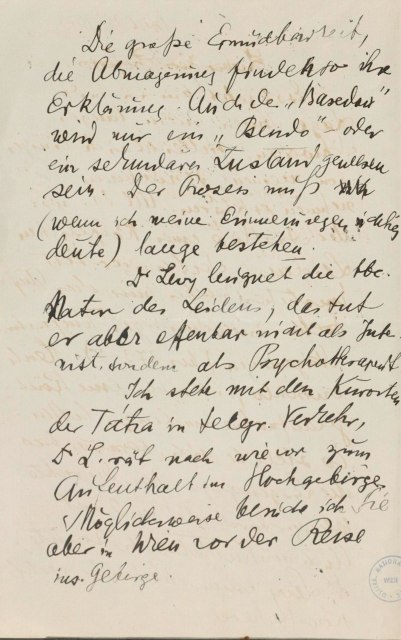 Die große Ermüdbarkeit,
die Abmagerung findet so ihre
Erklärung. Auch der „Basedow"
wird nur ein „Pseudo"- oder
ein sekundärer Zustand gewesen
sein. Der Prozess muß
(wenn ich meine Erinnerungen richtig
deute) lange bestehen.
Dr Lévy leugnet die tbc.
Natur des Leidens, das tut
er aber offenbar nicht als Inter-
nist, sondern als Psychotherapeut
Ich stehe mit den Kurorten
der Tátra in telegr. Verkehr,
Dr L. rät nach wie vor zum
Aufenthalt im Hochgebirge
Möglicherweise besuche ich Sie
aber in Wien vor der Reise
ins Gebirge.